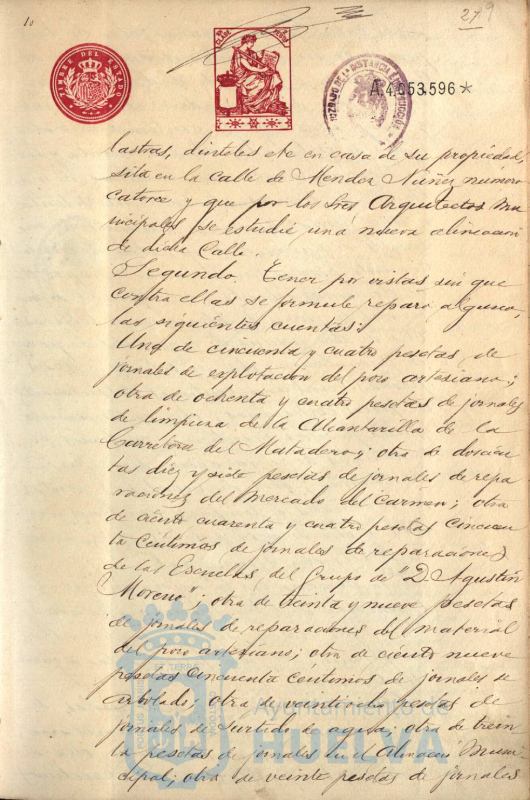 10
279
TIMBRE DEL ESTADO
A.4,553,596*
lastras, dinteles etc en casa de su propiedad
sita en la calle de Mendez Núñez numero
catorce y que por los Sres Arquitectos Mu
nicipales se estudie una nueva alineacion
de dicha Calle.
Segundo. Tener por vistas sin que
contra ellas se formule reparo alguno,
las siguientes cuentas:
Una de cincuenta y cuatro pesetas de
jornales de explotacion del pozo artesiano;
otra de ochenta y cuatro pesetas de jornales
de limpieza de la Alcantarilla de la
Carretera del Matadero; otra de doscien
tas diez y siete pesetas de jornales de repa
raciones del Mercado del Carmen; otra
de ciento cuarenta y cuatro pesetas cincuen
ta céntimos de jornales de reparaciones
de las Escuelas del Grupo de "D. Agustin
Moreno"; otra de treinta y nueve pesetas
de jornales de reparaciones del material
del pozo artesiano; otra de ciento nueve
pesetas cincuenta céntimos de jornales de
arbolado; otra de veintiocho pesetas de
jornales de surtido de agua; otra de trein
ta pesetas de jornales en el Almacen Muni
cipal; otra de veinte pesetas de jornales
Ayuntamiento de
HUELVA